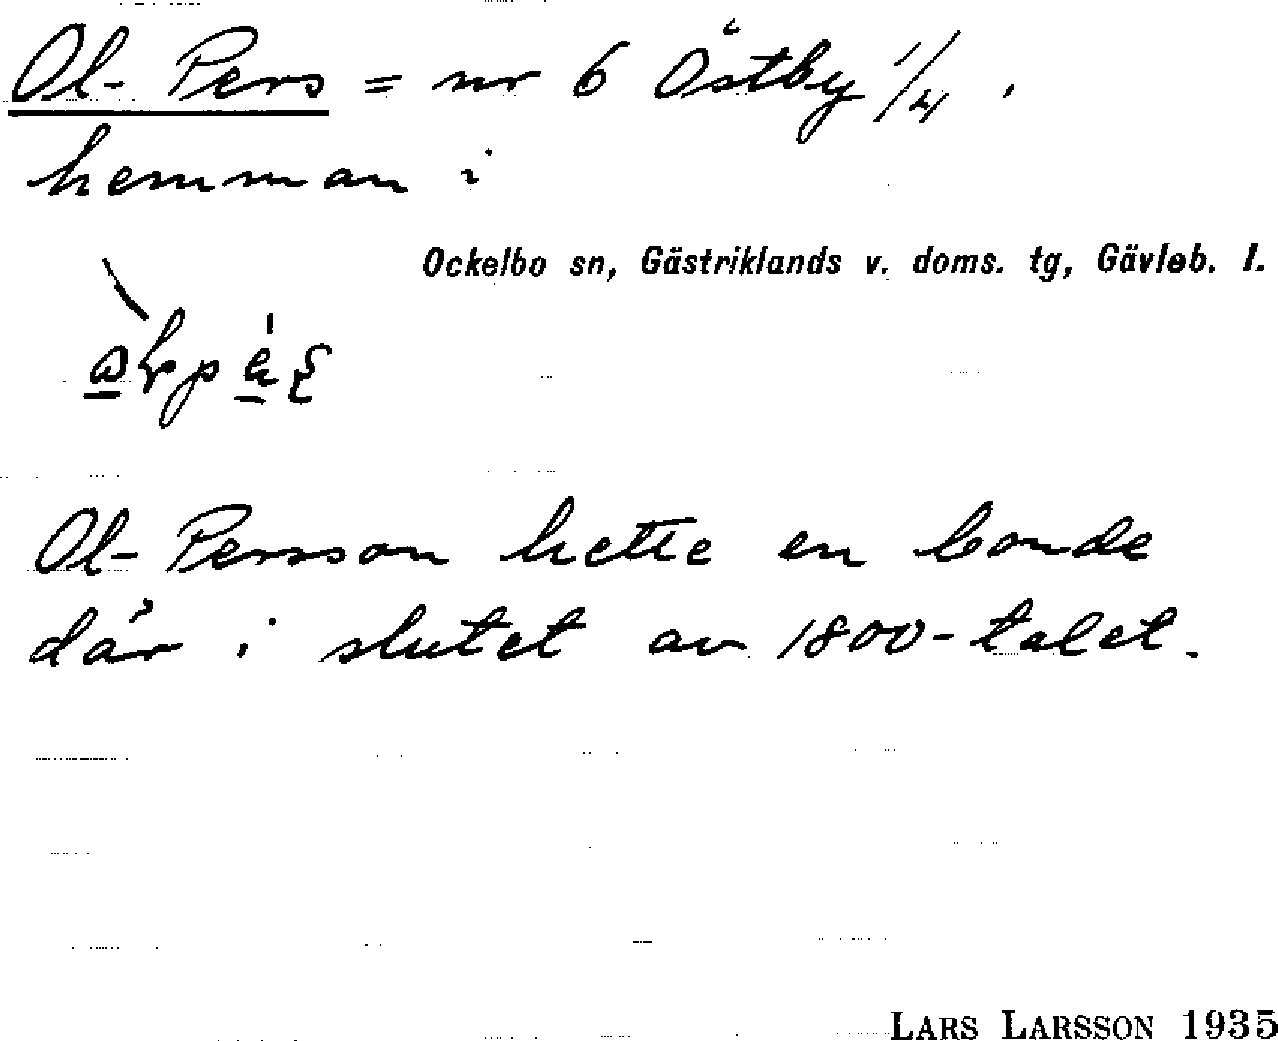 Ol-Pers = nr 6 Östby 1/4
hemman i
Ockelbo sn, Gästriklands v. doms. tg, Gävleb. l.
Ol-Persson hette en bonde
där i slutet av 1800-talet.
LARS LARSSON 1935